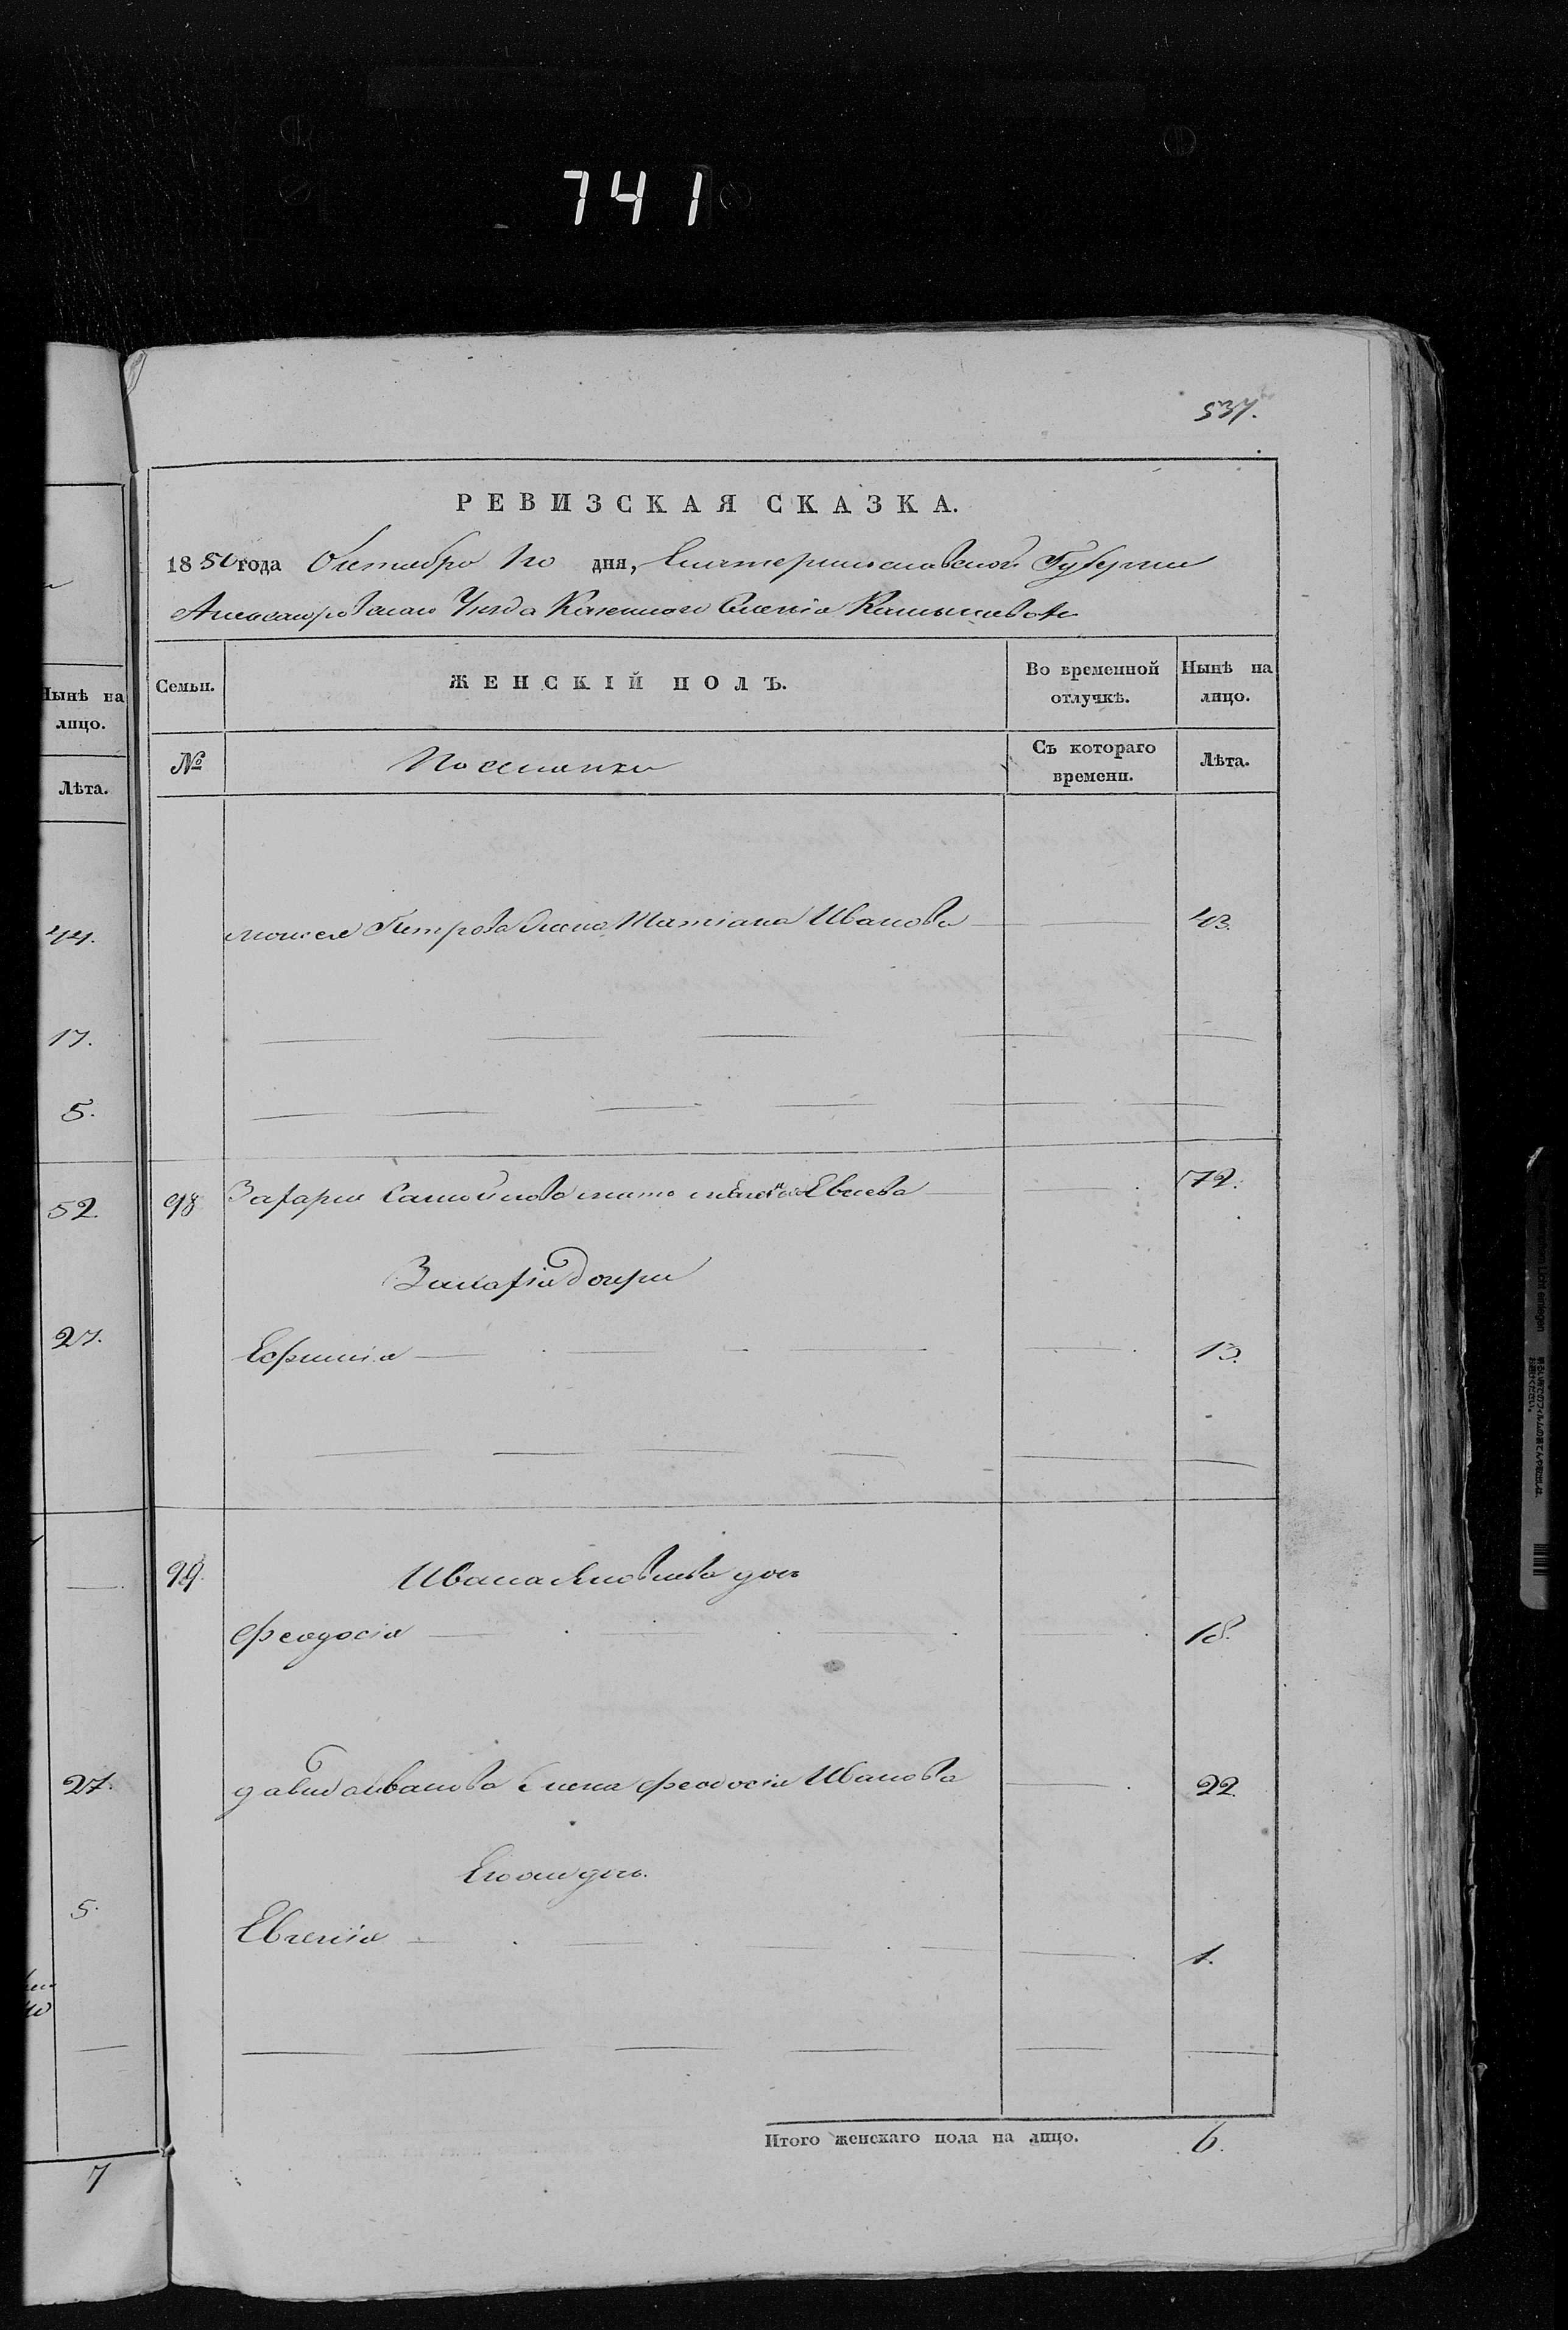 741
537.
РЕВИЗСКАЯ СКАЗКА.
1850 года Октября 10 дня, Екатеринославской Губернии
Александровскаго Уезда Казеннаго Селенія Камышевахи
Нынѣ на
лицо.
Лѣта.
44.
17.
5.
52
27.
27.
5.
7
Семьи.
ЖЕНСКІЙ ПОЛЪ.
Во временной
отлучкѣ.
Нынѣ на
лицо.
№
Поселянки
Съ котораго
времени.
Лѣта.
Моисея Петрова жена Татіана Иванова 43.
98 Захарія Самойлова Евсеева 72.
Захарія дочери
Ефимія 13.
99. Ивана Яковлева дочь
Феодосія 18.
Давида Иванова жена Феодосія Иванова 22.
Его дочь.
Евгенія 1.
Итого женскаго пола на лицо. 6.